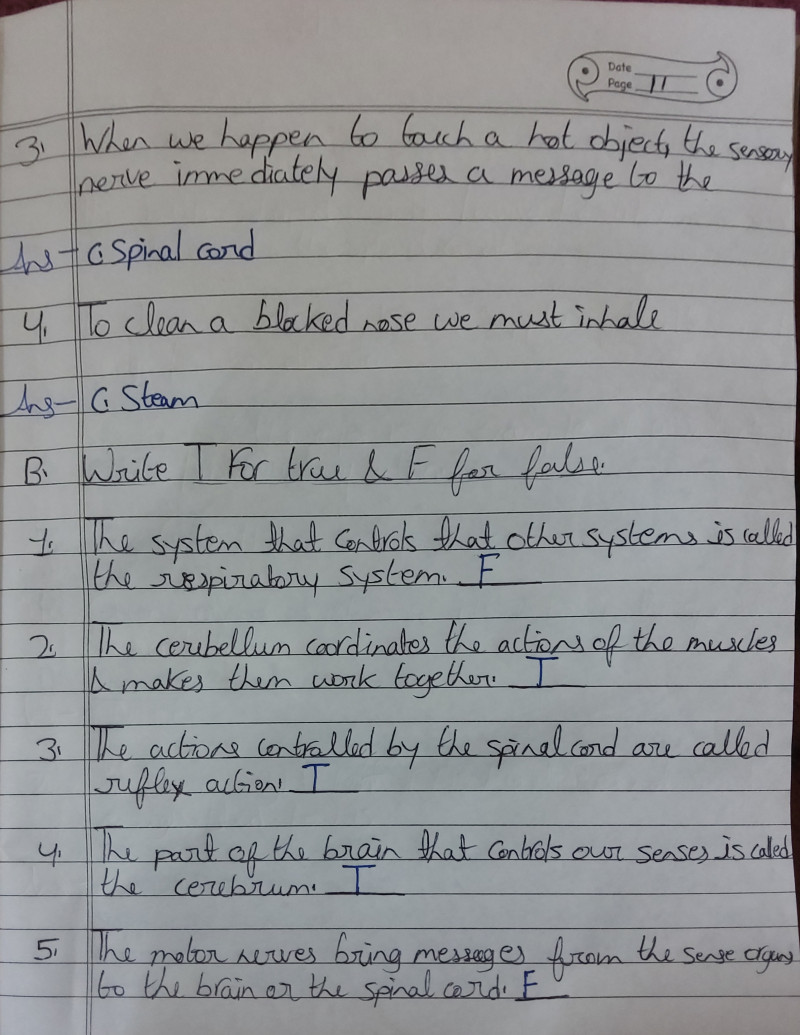 Date
Page 11
3. When we happen to touch a hot object, the sensory
nerve immediately passes a message to the
Ans- C. Spinal cord
4. To clean a blocked nose we must inhale
Ans- C. Steam
B. Write T for true & F for false.
1. The system that controls that other systems is called
the respiratory system. F
2. The cerebellum coordinates the actions of the muscles
& makes them work together. T
3. The actions controlled by the spinal cord are called
reflex action. T
4. The part of the brain that controls our senses is called
the cerebrum. T
5. The motor nerves bring messages from the sense organs
to the brain or the spinal cord. F